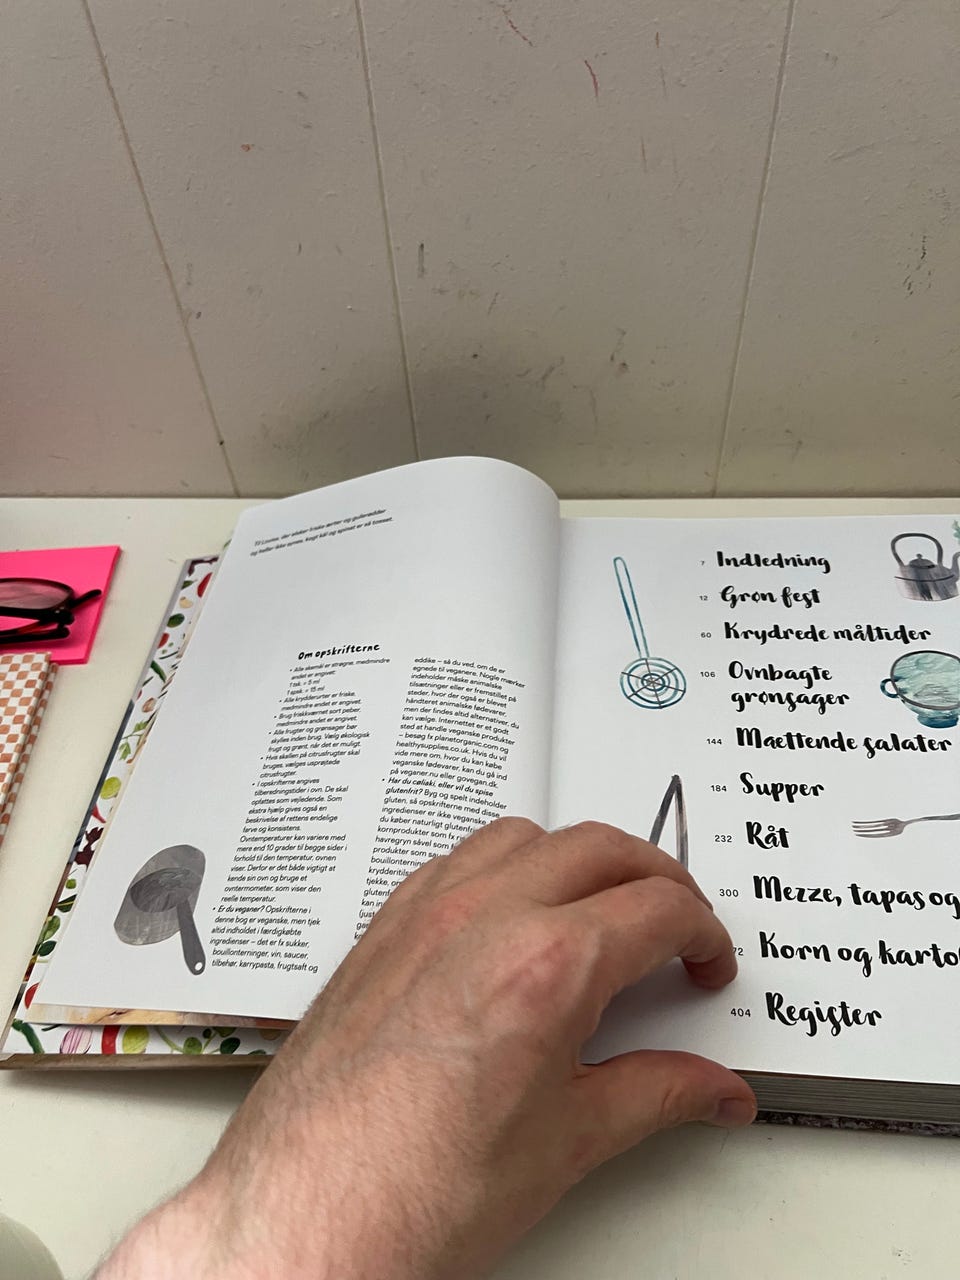 Til Louise, der elsker friske ærter og gulerødder
og heller ikke synes, kogt kål og spinat er så tosset.
Om opskrifterne
• Alle skemål er strøgne, medmindre
andet er angivet.
1 tsk. = 5 ml
1 spsk. = 15 ml
• Alle krydderurter er friske,
medmindre andet er angivet.
• Brug friskkværnet sort peber,
medmindre andet er angivet.
• Alle frugter og grønsager bør
skylles inden brug. Vælg økologisk
frugt og grønt, når det er muligt.
• Hvis skallen på citrusfrugter skal
bruges, vælges usprøjtede
citrusfrugter.
• I opskrifterne angives
tilberedningstider i ovn. De skal
opfattes som vejledende. Som
ekstra hjælp gives også en
beskrivelse af rettens endelige
farve og konsistens.
Ovntemperaturer kan variere med
mere end 10 grader til begge sider i
forhold til den temperatur, ovnen
viser. Derfor er det både vigtigt at
kende sin ovn og bruge et
ovntermometer, som viser den
reelle temperatur.
• Er du veganer? Opskrifterne i
denne bog er veganske, men tjek
altid indholdet i færdigkøbte
ingredienser – det er fx sukker,
bouillonterninger, vin, saucer,
tilbehør, karrypasta, frugtsaft og
eddike – så du ved, om de er
egnede til veganere. Nogle mærker
indeholder måske animalske
tilsætninger eller er fremstillet på
steder, hvor der også er blevet
håndteret animalske fødevarer,
men der findes altid alternativer, du
kan vælge. Internettet er et godt
sted at handle veganske produkter
– besøg fx planetorganic.com og
healthysupplies.co.uk. Hvis du vil
vide mere om, hvor du kan købe
veganske fødevarer, kan du gå ind
på veganer.nu eller govegan.dk.
• Har du cøliaki, eller vil du spise
glutenfrit? Byg og spelt indeholder
gluten, så opskrifterne med disse
ingredienser er ikke veganske,
du køber naturligt glutenfri
kornprodukter som fx
havregryn såvel som
produkter som
bouillonterning
krydderi
tjekke,
gluten
kan
7 Indledning
12 Grøn fest
60 Krydrede måltider
106 Ovnbagte
grønsager
144 Mættende salater
184 Supper
232 Råt
300 Mezze, tapas og
72 Korn og karto
404 Register